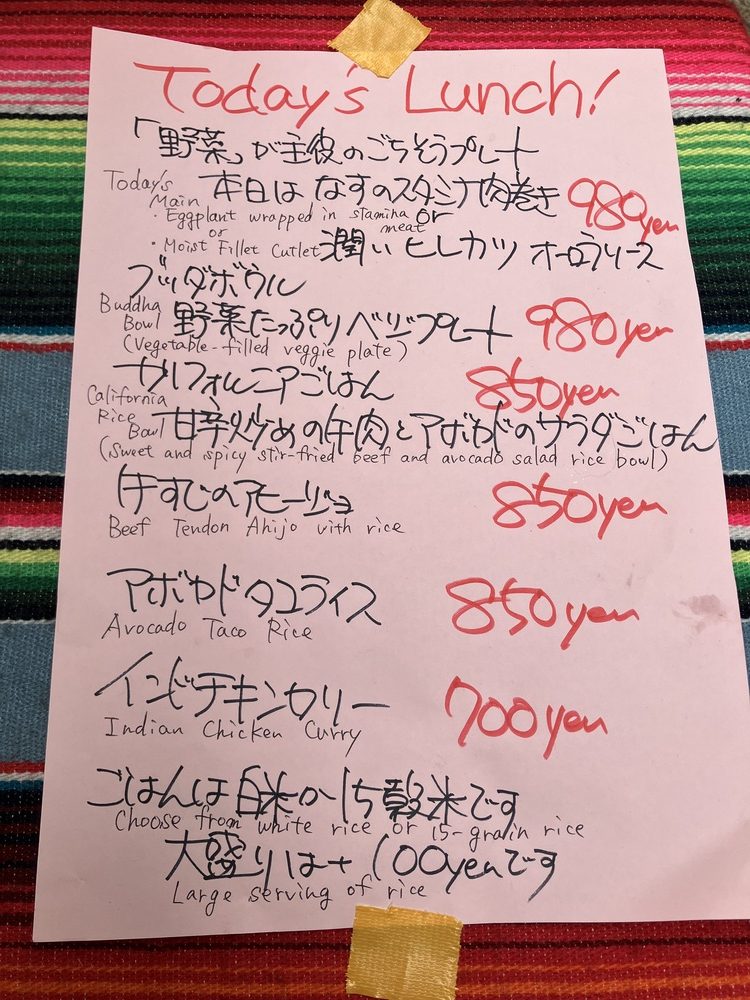 Today's Lunch!
「野菜」が主役のごちそうプレート
Today's Main 本日は なすのスタミナ肉巻き 980yen
・Eggplant wrapped in stamina meat or
or
・Moist Fillet Cutlet 潤いヒレカツ オーロラソース
ブッダボウル
Buddha Bowl 野菜たっぷりベジプレート 980yen
(Vegetable-filled veggie plate)
カリフォルニアごはん 850yen
California Rice Bowl 甘辛炒めの牛肉とアボカドのサラダごはん
(Sweet and spicy stir-fried beef and avocado salad rice bowl)
牛すじのアヒージョ 850yen
Beef Tendon Ahijo vith rice
アボカドタコライス 850yen
Avocado Taco Rice
インドチキンカリー 700yen
Indian Chicken Curry
ごはんは白米か15穀米です
Choose from white rice or 15-grain rice
大盛りは+100yenです
Large serving of rice